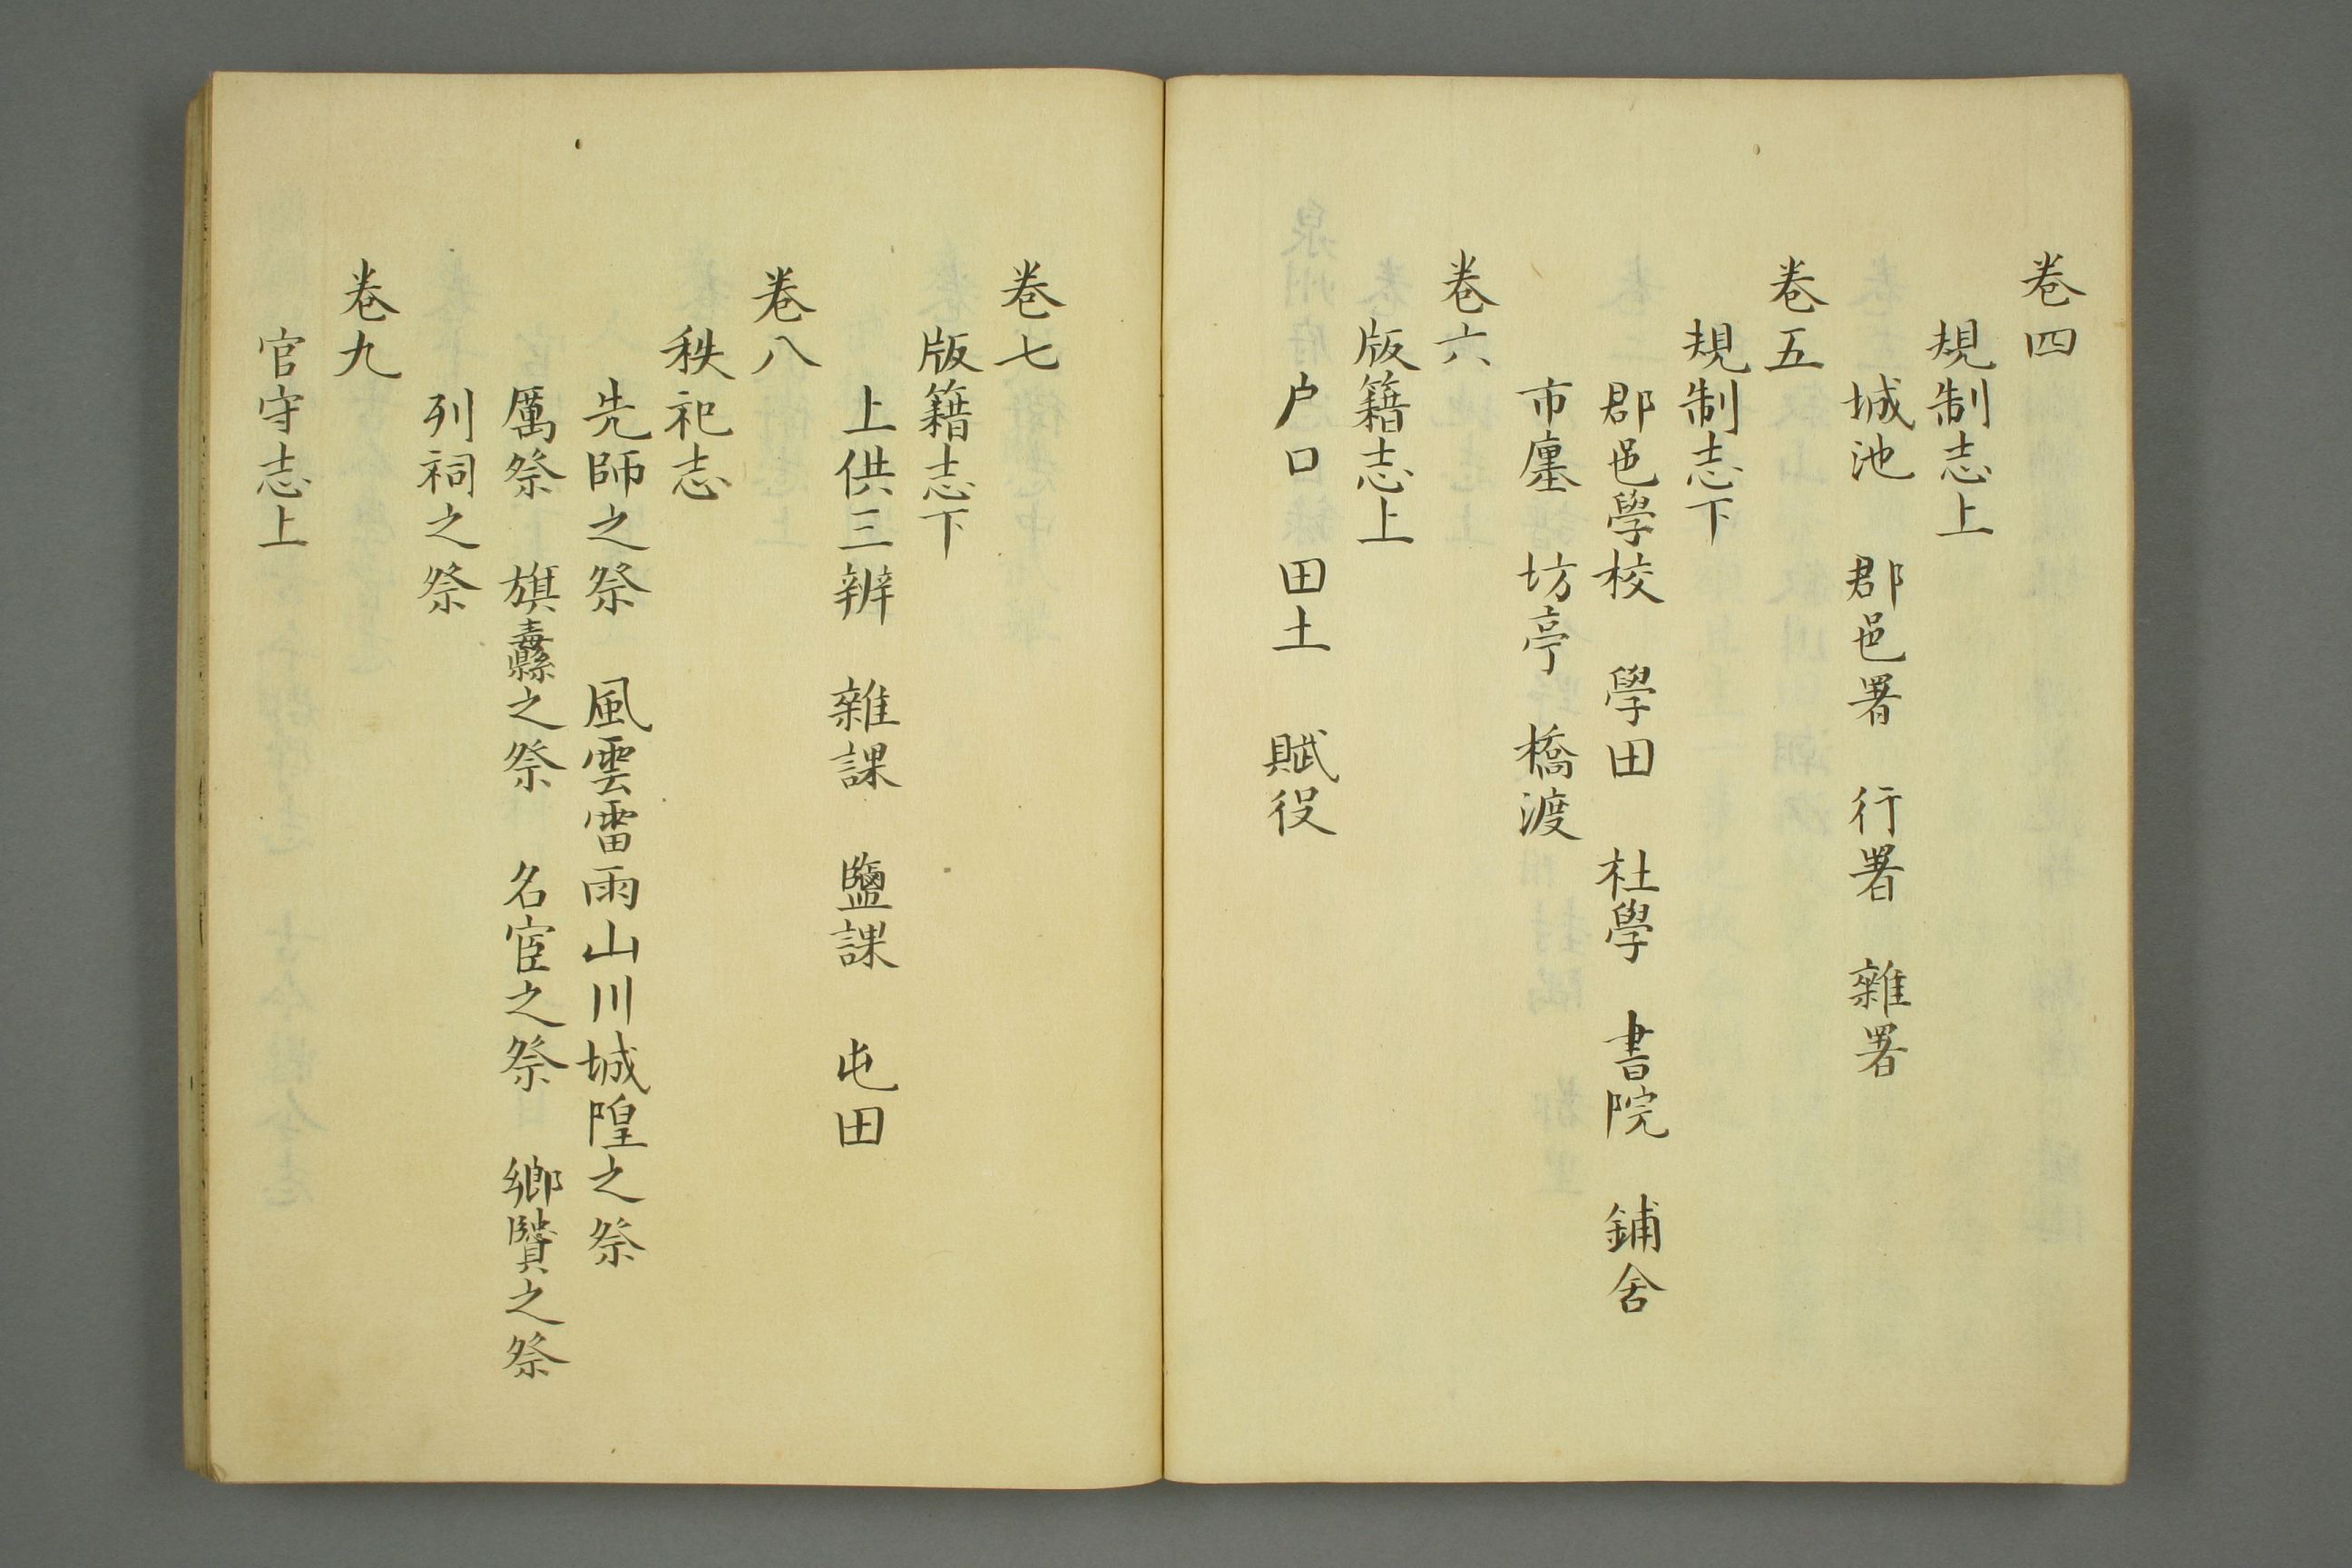 卷四
規制志上
城池　郡邑署　行署　雜署
卷五
規制志下
郡邑學校　學田　社學　書院　鋪舍
市廛　坊亭　橋渡
卷六
版籍志上
户口　田土　賦役
卷七
版籍志下
上供三辨　雜課　鹽課　屯田
卷八
秩祀志
先師之祭　風雲雷雨山川城隍之祭
厲祭　旗纛之祭　名宦之祭　鄉賢之祭
列祠之祭
卷九
官守志上